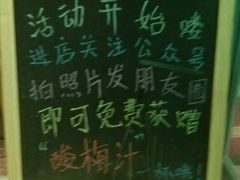 活动开始喽
进店关注公众号
拍照片发朋友圈
即可免费获赠
"酸梅汁"一杯哦!